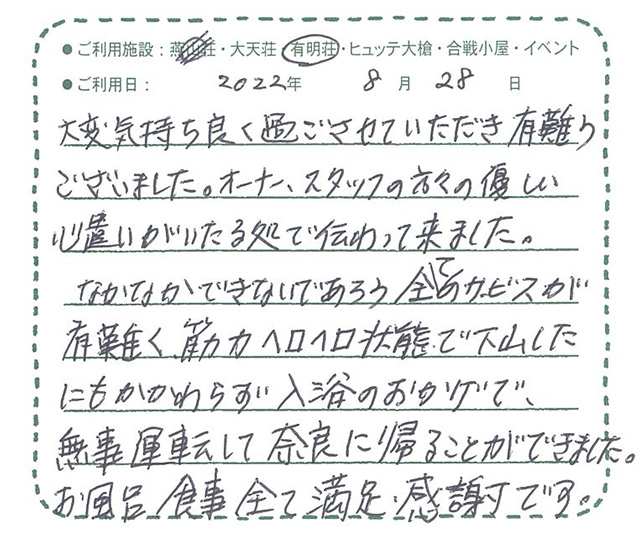 ●ご利用施設：燕山荘・大天荘・有明荘・ヒュッテ大槍・合戦小屋・イベント
●ご利用日： 2022年 8月 28日
大変気持ち良く過ごさせていただき有難う
ございました。オーナー、スタッフの方々の優しい
心遣いがいたる処で伝わって来ました。
なかなかできないであろう全てのサービスが
有難く、筋力ヘロヘロ状態で下山した
にもかかわらず入浴のおかげで、
無事運転して奈良に帰ることができました。
お風呂、食事全て満足・感謝です。